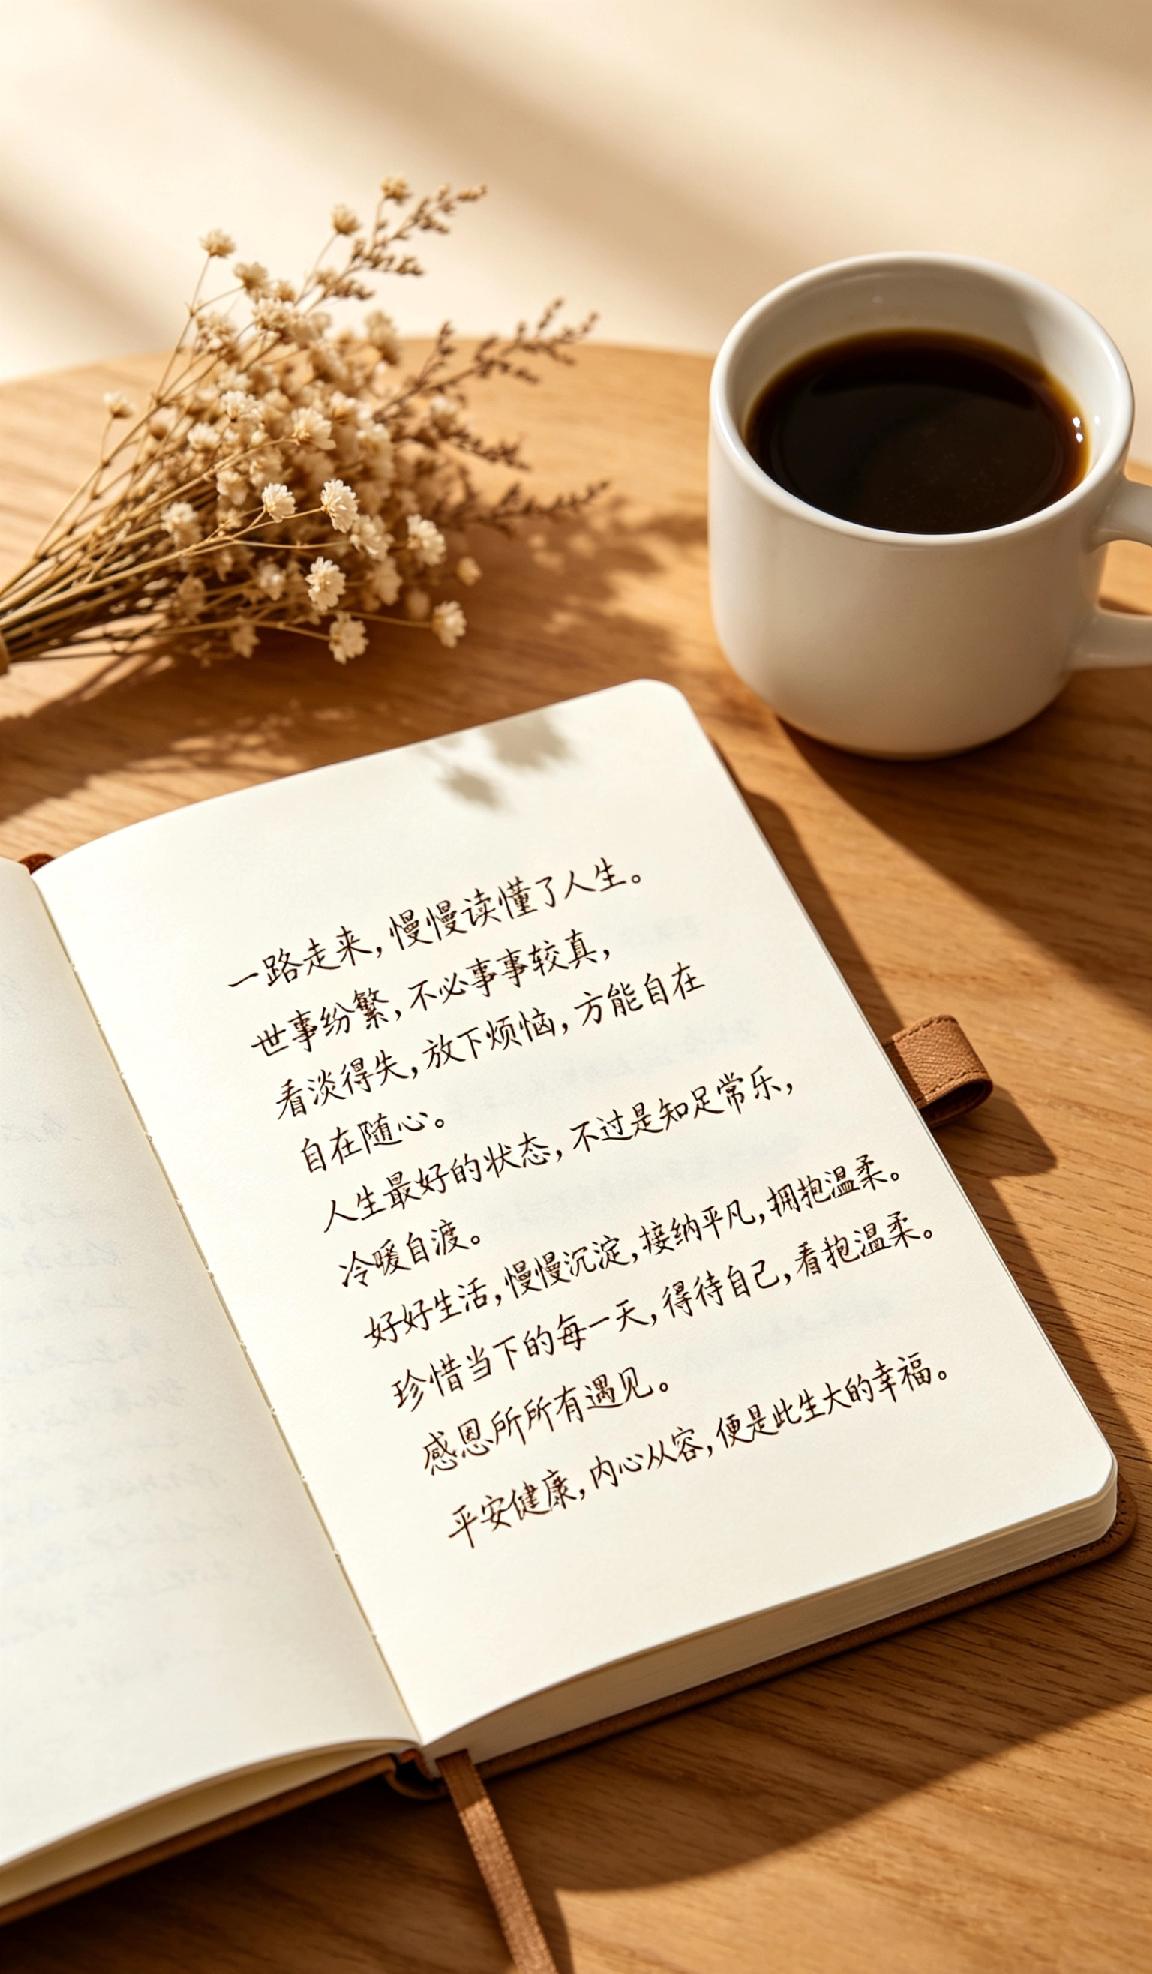 一路走来，慢慢读懂了人生。
世事纷繁，不必事事较真，
看淡得失，放下烦恼，方能自在
自在随心。
人生最好的状态，不过是知足常乐，
冷暖自渡。
好好生活，慢慢沉淀，接纳平凡，拥抱温柔。
珍惜当下的每一天，得待自己，看抱温柔。
感恩所所有遇见。
平安健康，内心从容，便是此生大的幸福。